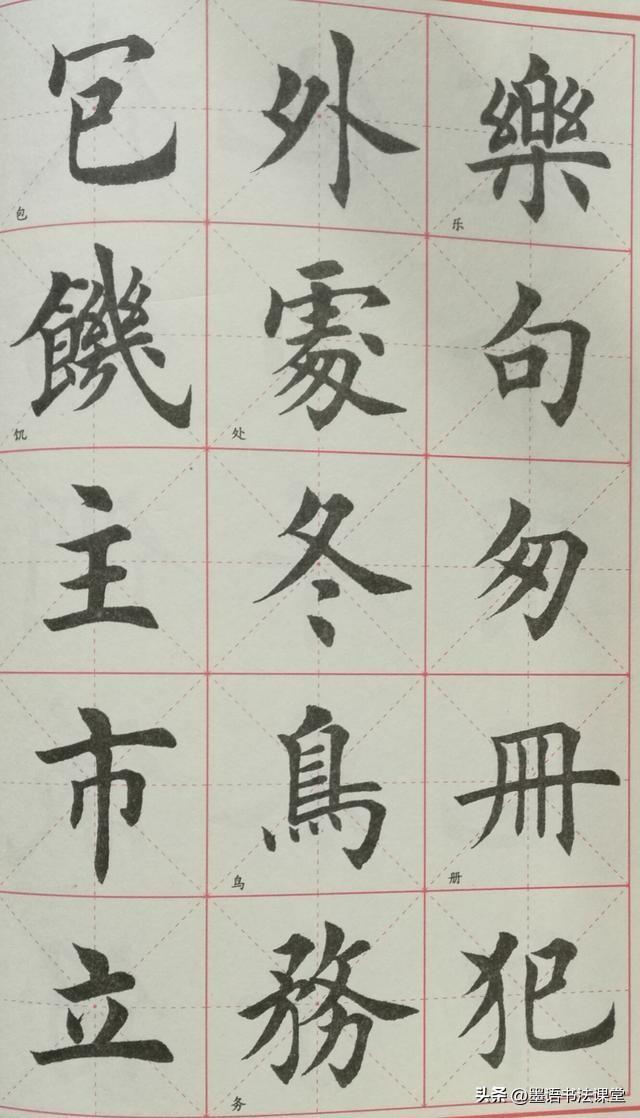 樂 乐 句 匆 冊 册 犯
外 處 处 冬 鳥 鸟 務 务
包 包 饑 饥 主 市 立
头条 @墨语书法课堂